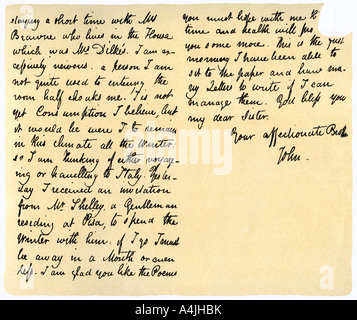 staying a short time with Mrs
Brawne who lives in the House
which was Mrs Dilke's. I am ex-
cessively nervous. a person I am
not quite used to entering the
room half choaks me. 'Tis not
yet Consumption I believe, but
it would be were I to remain
in this climate all the Winter:
so I am thinking of either voyag-
ing or travelling to Italy. Yester-
day I received an invitation
from Mr Shelley, a Gentleman
residing at Pisa, to spend the
Winter with him. if I go I must
be away in a Month or even
less. I am glad you like the Poems
you must hope with me
time and health will pro
you some more. This is the
morning I have been able to
sit to the paper and have ma
ny Letters to write if I can
manage them. God bless you
my dear Sister.
Your affectionate
John.
alamy
Image ID: A4JHBK
www.alamy.com